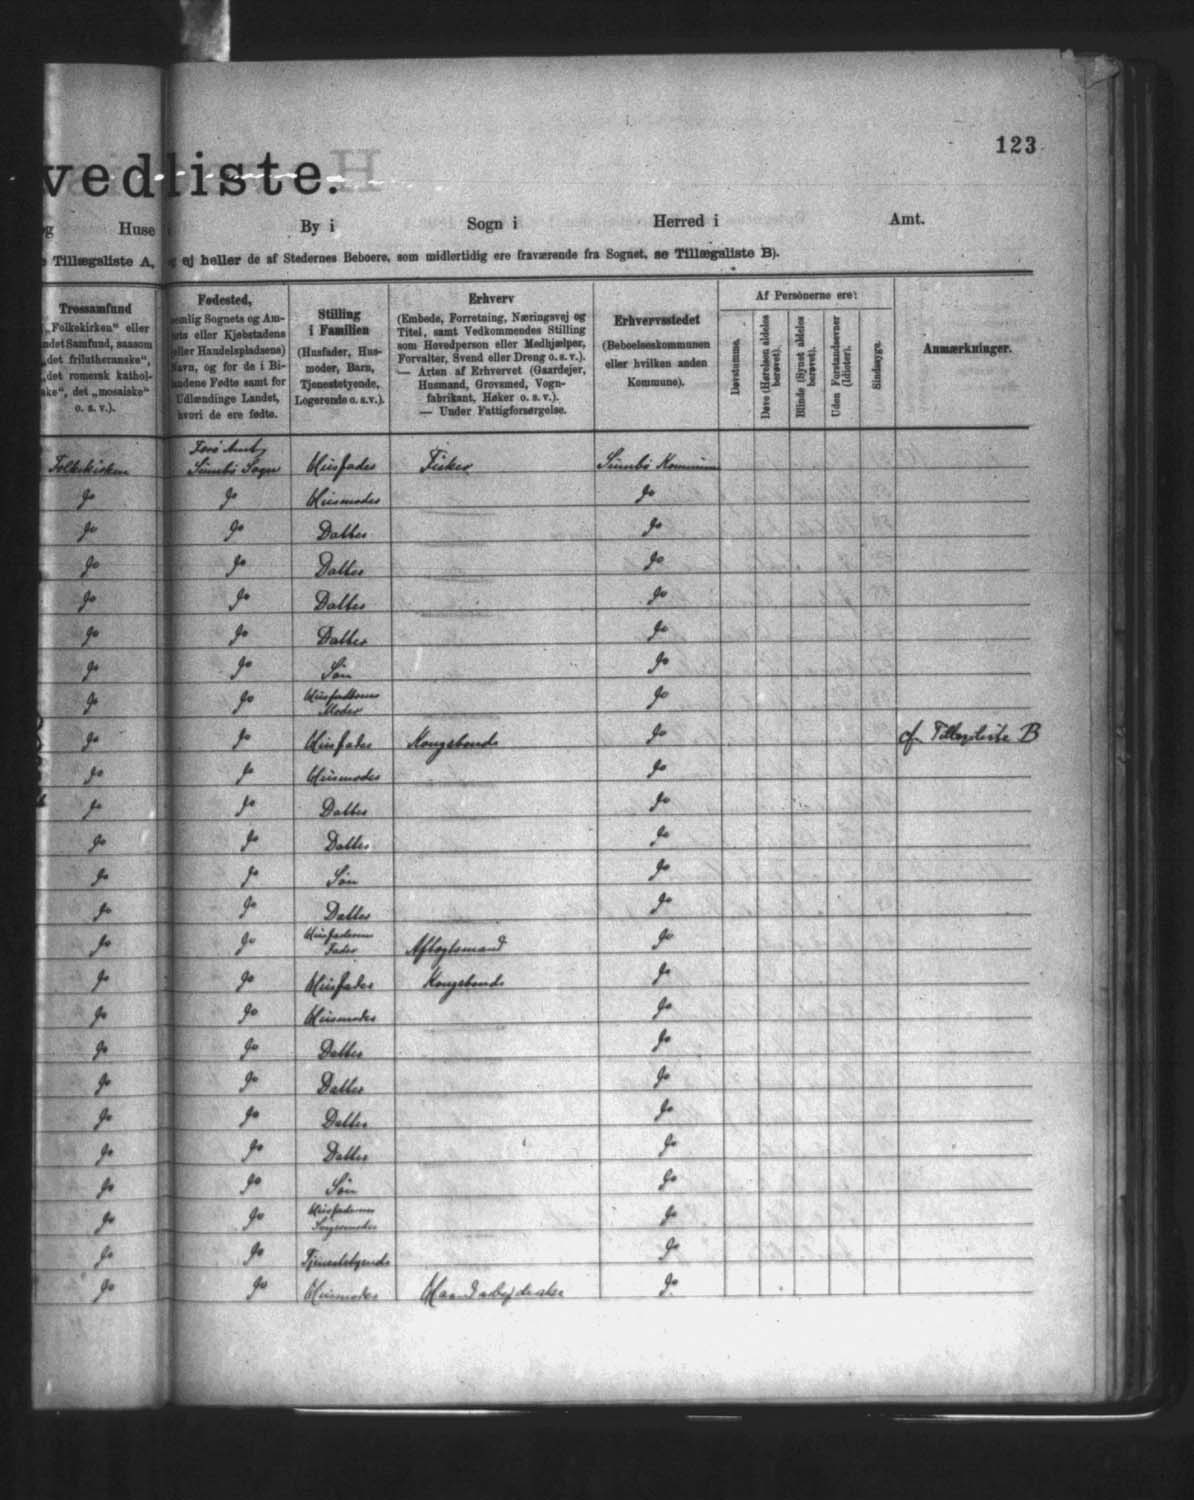 123
vedliste.
og Huse i By i Sogn i Herred i Amt.
Tillægsliste A, og ej heller de af Stedernes Beboere, som midlertidig ere fraværende fra Sognet, se Tillægsliste B).
Trossamfund
(„Folkekirken“ eller
andet Samfund, saasom
„det frilutheranske“,
„det romersk kathol-
ske“, det „mosaiske“
o. s. v.).
Fødested,
nemlig Sognets og Am-
ets eller Kjøbstadens
(eller Handelspladsens)
Navn, og for de i Bi-
landene Fødte samt for
Udlændinge Landet,
hvori de ere fødte.
Stilling
i Familien
(Husfader, Hus-
moder, Barn,
Tjenestetyende,
Logerende o. s.v.).
Erhverv
(Embede, Forretning, Næringsvej og
Titel, samt Vedkommendes Stilling
som Hovedperson eller Medhjælper,
Forvalter, Svend eller Dreng o. s. v.).
— Arten af Erhvervet (Gaardejer,
Husmand, Grovsmed, Vogn-
fabrikant, Høker o. s. v.).
— Under Fattigforsørgelse.
Erhvervsstedet
(Beboelseskommunen
eller hvilken anden
Kommune).
Af Personerne ere:
Døvstumme.
Døve (Hørelsen aldeles
berøvet).
Blinde (Synet aldeles
berøvet).
Uden Forstandsevner
(Idioter).
Sindssyge.
Anmærkninger.
Færø Amt
Folkekirken Sumbø Sogn Husfader Fisker Sumbø Kommune
do do Husmoder do
do do Datter do
do do Datter do
do do Datter do
do do Datter do
do do Søn do
do do Husfaderens Moder do
do do Husfader Kongsbonde do cf. Tillægsliste B
do do Husmoder do
do do Datter do
do do Datter do
do do Søn do
do do Datter do
do do Husfaderens Fader Aftægtsmand do
do do Husfader Kongsbonde do
do do Husmoder do
do do Datter do
do do Datter do
do do Datter do
do do Datter do
do do Søn do
do do Husfaderens do
do do Tjenestetyende do
do do Husmoder Haandarbejderske do